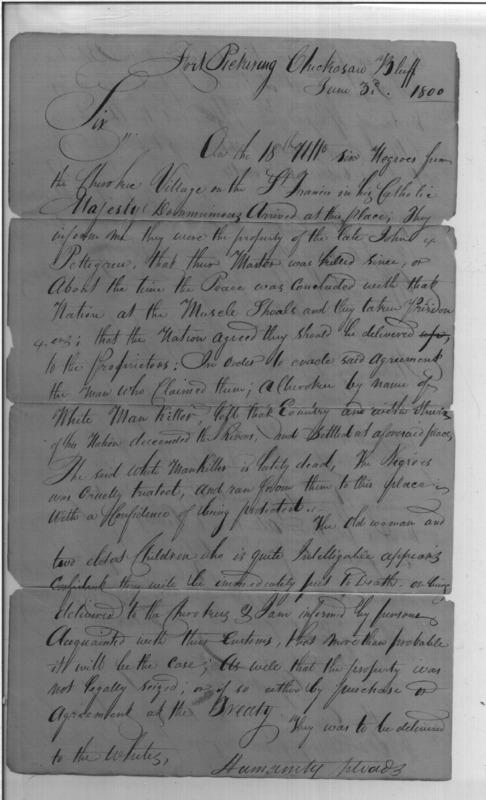 Fort Pickering Chickasaw Bluff
June 3d. 1800
Sir
On the 18th Ulto six Negroes from
the Cherokee Village on the St Francis in his Catholic
Majesty Arrived at this Place; They
inform me they were the property of the late John
Pettegrew, that their Master was killed since, or
About the time the Peace was concluded with that
Nation at the Muscle Shoals and they taken Prisdon
ers; that the Nation agreed they should be delivered
to the Proprietors: In order to evade said Agreement
the man who Claimed them; a Cherokee by name of
White Man Killer left that Country and with others
of his Nation descended the River, and Settled at aforesaid place,
The said White Mankiller is lately dead, The Negroes
was Cruelly treated, and ran from them to this place
With a Confidence of being protected.
The Old woman and
two eldest Children who is quite Intelligable appears
Confident they will be immediately put to Death on being
delivered to the Cherokees & I am informed by persons
Acquainted with their Customs, that more than probable
it will be the case; As well that the property was
not legally seized; or if so either by purchase or
Agreement at the Treaty
They was to be delivered
to the Whites,
Humanity pleads